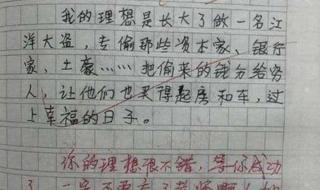 我的理想是长大了做一名江
洋大盗，专偷那些资本家、银行
家、土豪……把偷来的钱分给穷
人，让他们也买得起房和车，过
上幸福的日子。
你的理想很不错，等你成功
了一定不要忘了